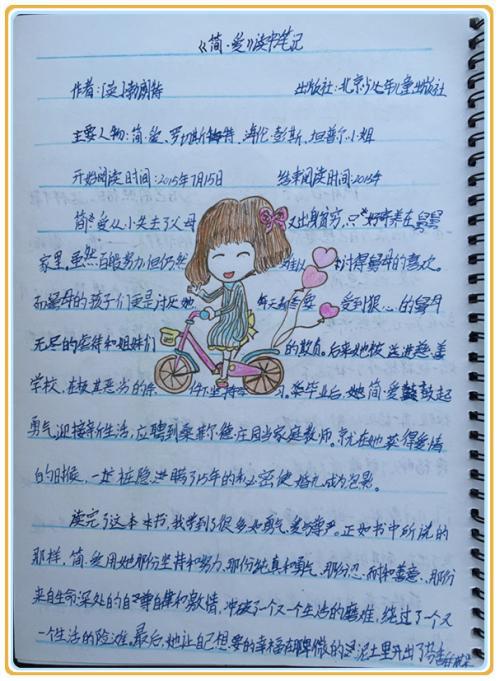 《简·爱》读书笔记
作者:[英]勃朗特 出版社:北京少年儿童出版社
主要人物:简·爱、罗切斯特、海伦·彭斯、坦普尔小姐
开始阅读时间:2015年7月15日 结束阅读时间:2015年
简·爱从小失去了父母 又出身贫穷,只好寄养在舅舅
家里。虽然百般努力,但仍然 难以 讨得舅母的喜欢。
而舅母的孩子们更是讨厌她 每天都要 受到狠心的舅母
无尽的虐待和姐妹们 的欺负。后来她被送进慈善
学校,在极其恶劣的条 件下坚持学 习。毕业后,她简·爱鼓起
勇气迎接新生活,应聘到桑菲尔德·庄园当家庭教师。就在她获得爱情
的时候,一桩隐瞒了15年的秘密使婚礼成为泡影。
读完了这本书,我学到了很多如勇气、爱与尊严。正如书中所说的
那样,简·爱用她那份坚持和努力,那份纯真和勇气,那份忍耐和善意,那份
来自生命深处的自尊自傲和激情,冲破了一个又一个生活的磨难,绕过了一个又
一个生活的险滩,最后,她让自己想要的幸福在卑微的泥土里开出了芬香